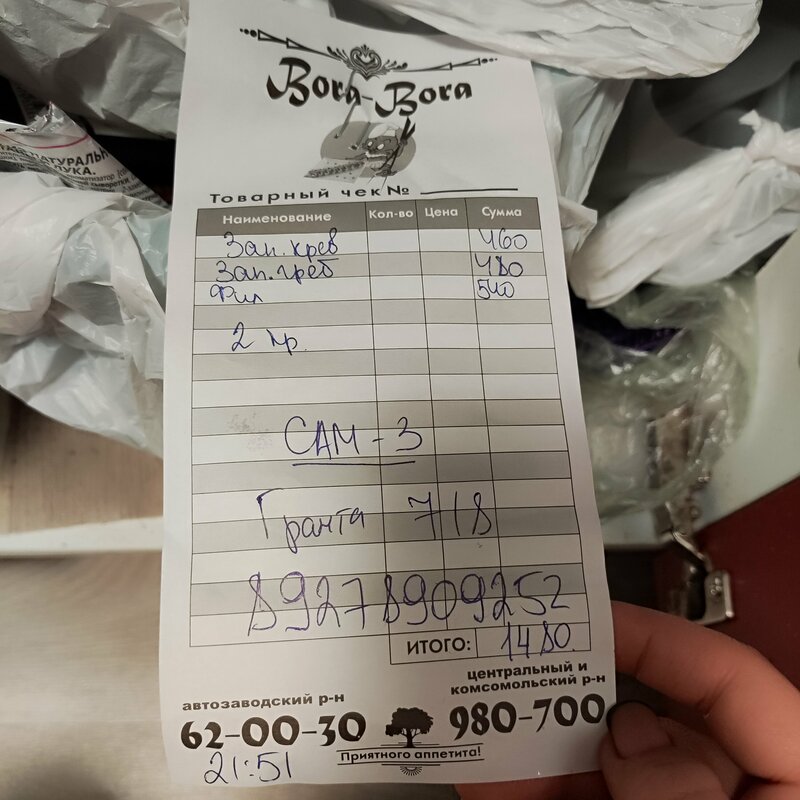 Bora-Bora
Товарный чек №
Наименование Кол-во Цена Сумма
Зап. крев 460
Зап. греб 480
Фил 540
2 пр.
САМ-3
Гранта 718
89278909252
ИТОГО: 1480
автозаводский р-н
62-00-30
центральный и
комсомольский р-н
980-700
Приятного аппетита!
21:51